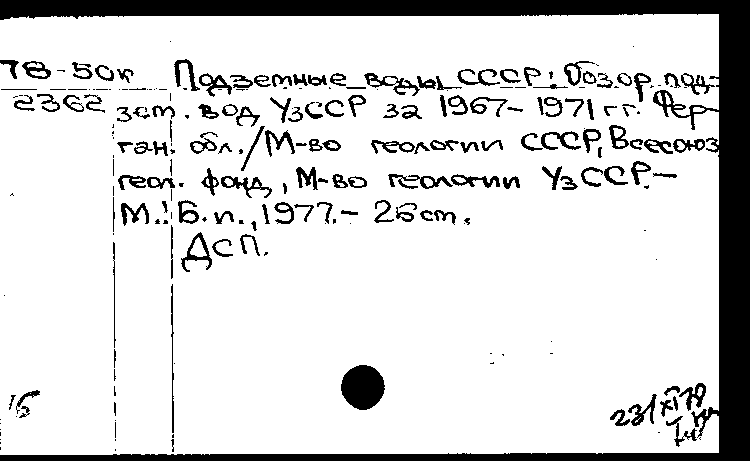 78-50к Подземные воды СССР: Обзор под-
2362 зем. вод УзССР за 1967-1971 гг. Фер-
ган. обл./М-во геологии СССР, Всесоюз.
геол. фонд, М-во геологии УзССР.-
М.: Б.и., 1977.- 26 см.
ДСП.
15
23/XI 78